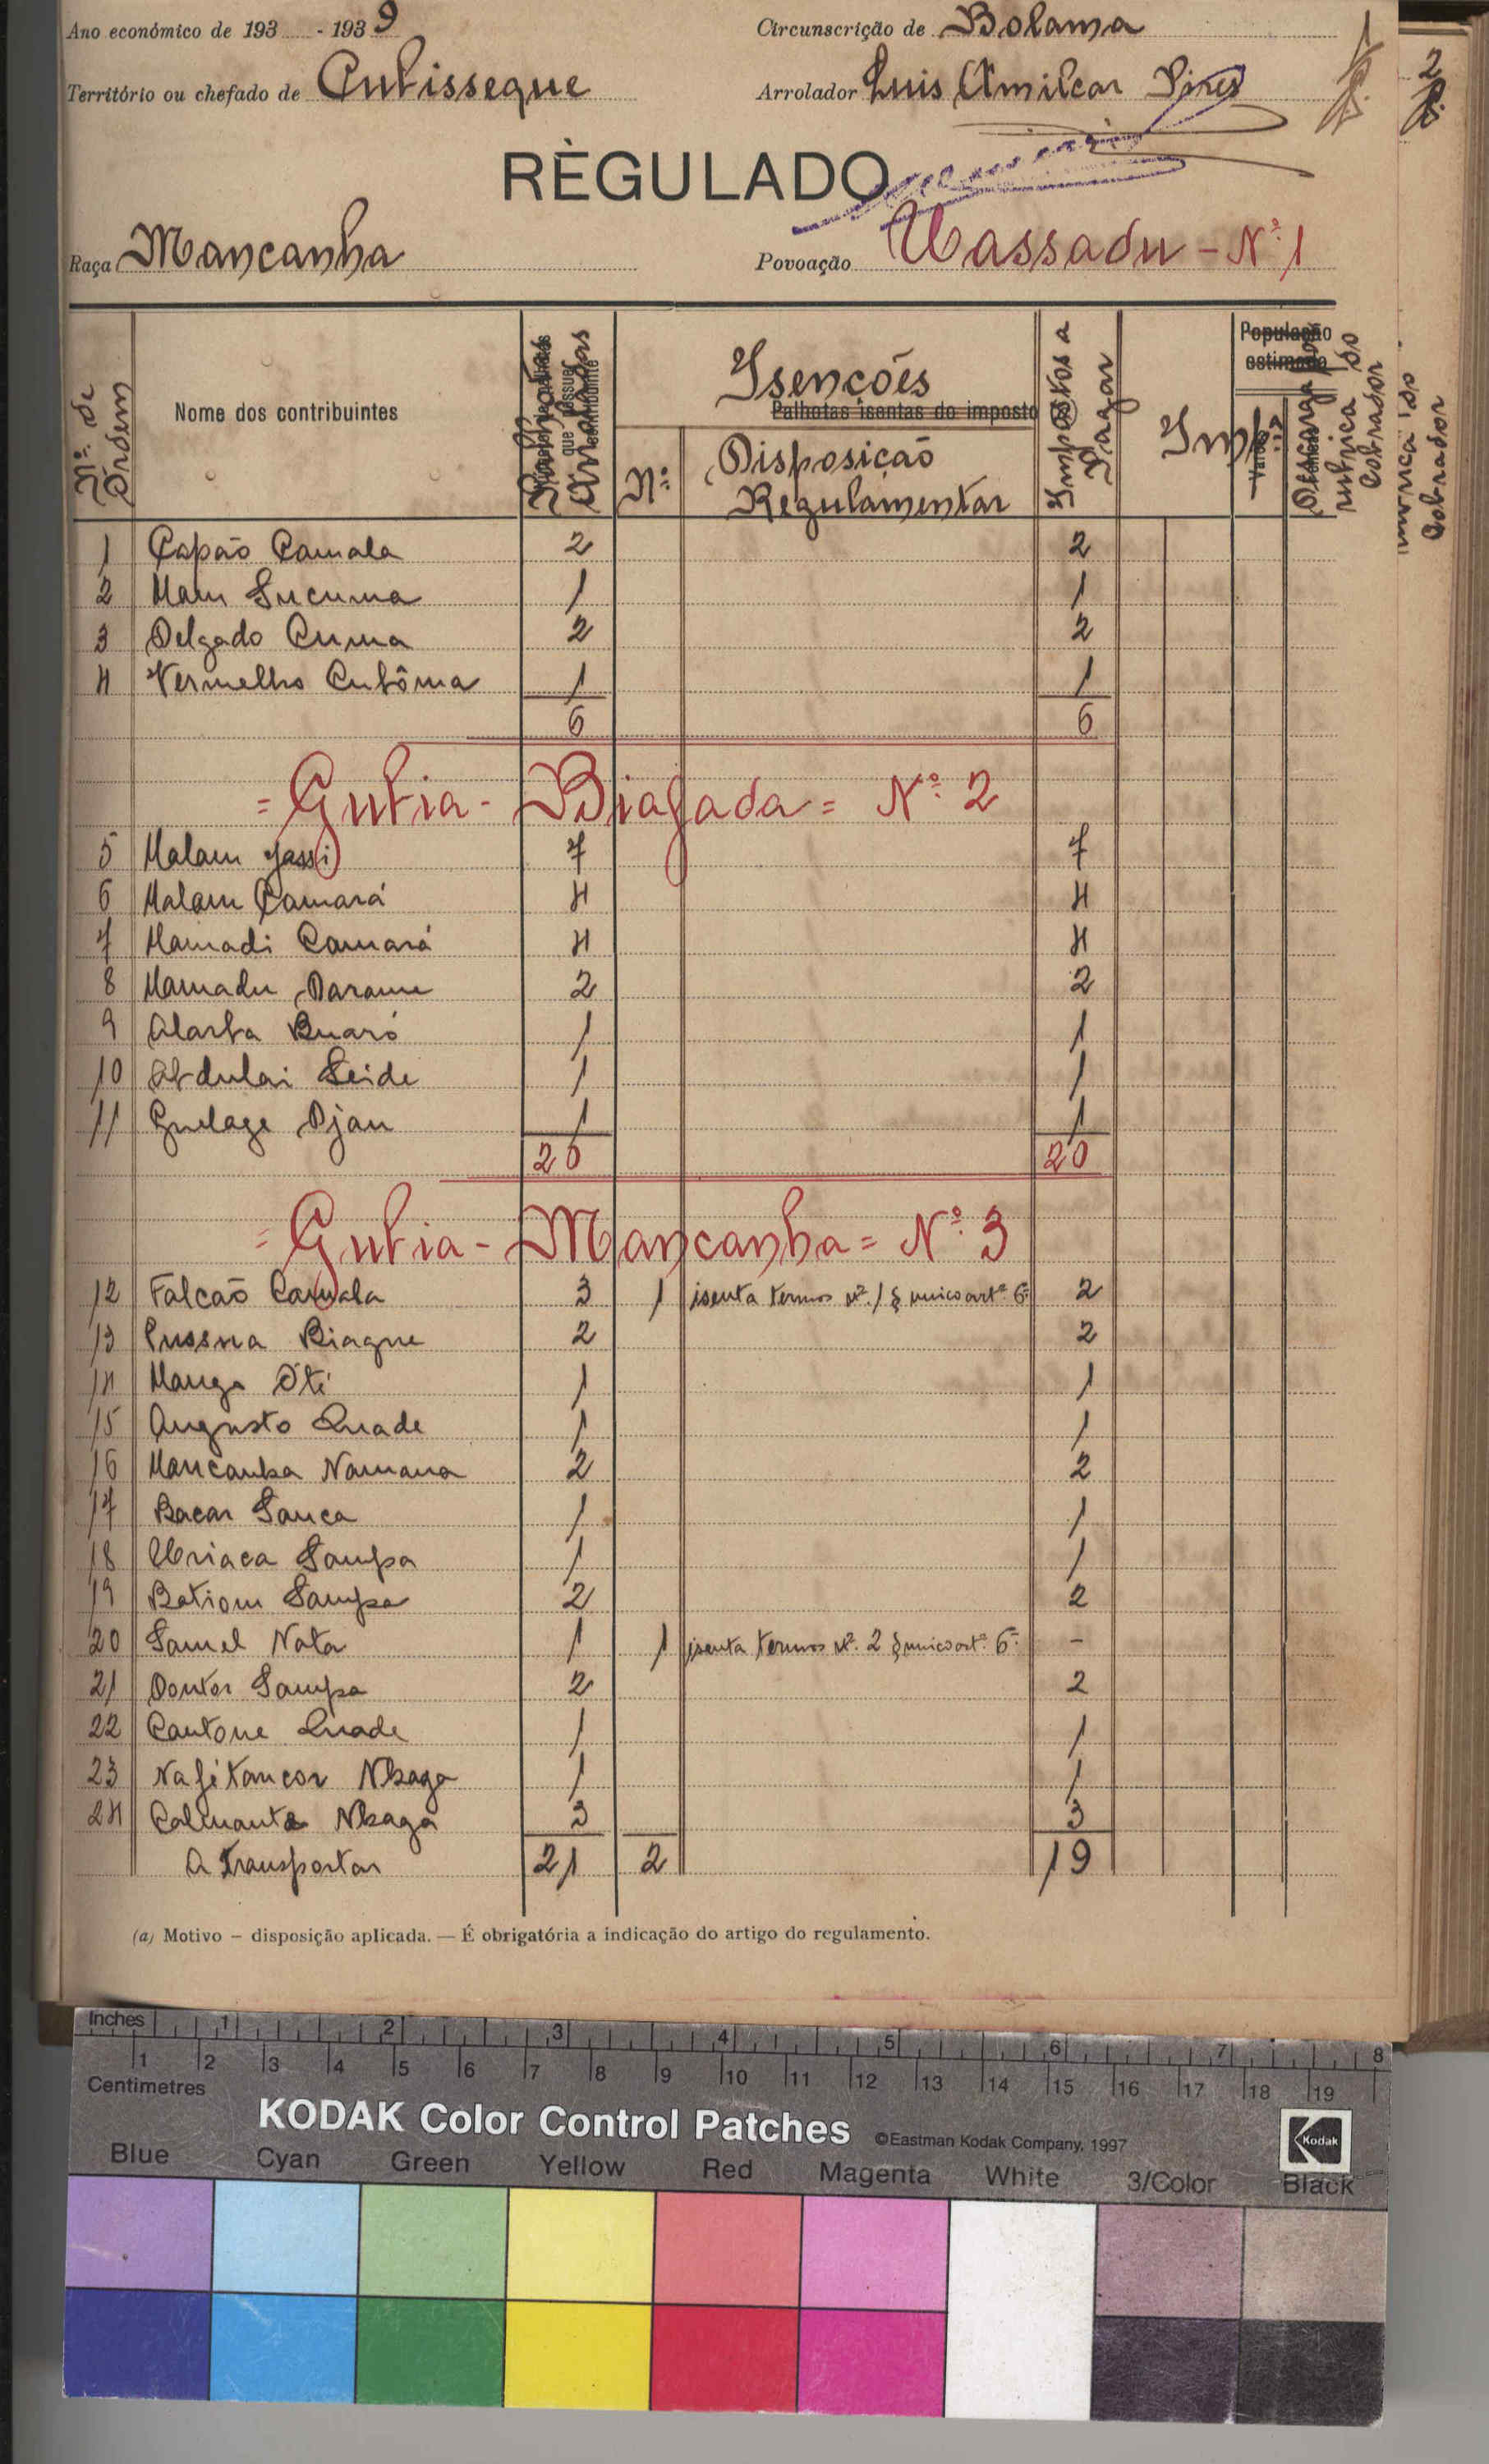 Ano económico de 193 - 1939 Circunscrição de Bolama
Território ou chefado de Cubisseque Arrolador Luis Amilcar Pires
RÈGULADO
Raça Mancanha Povoação Uassadu - Nº 1
Nº de Ordem Nome dos contribuintes Palhotas Arroladas Isenções Impostos a Pagar População estimada
Palhotas isentas do imposto
Nº Disposição Regulamentar Descarga rubrica do Cobrador
rubrica do Cobrador
1 Capão Camala 2 2
2 Mam Sucuma 1 1
3 Delgado Cuma 2 2
4 Vermelho Cubôma 1 1
6 6
= Gubia - Biafada = Nº 2
5 Malam Jassi 7 7
6 Malam Camará 4 4
7 Mamadi Camará 4 4
8 Mamadu Darame 2 2
9 Alarba Buaró 1 1
10 Abdulai Seide 1 1
11 Quelage Djau 1 1
20 20
= Gubia - Mancanha = Nº 3
12 Falcão Camala 3 1 isenta termos nº 1 § unico artº 6º 2
13 Pussna Biague 2 2
14 Manga Oti 1 1
15 Augusto Quade 1 1
16 Mancanha Namana 2 2
17 Bacar Sanca 1 1
18 Uriaca Sampa 1 1
19 Batiom Sampa 2 2
20 Samel Nata 1 1 isenta termos nº 2 § unico artº 6º -
21 Doutor Sampa 2 2
22 Cantone Quade 1 1
23 Nafitancor Nbaga 1 1
24 Calmante Nbaga 3 3
A Transportar 21 2 19
(a) Motivo – disposição aplicada. — É obrigatória a indicação do artigo do regulamento.
Inches 1 2 3 4 5 6 7 8
1 2 3 4 5 6 7 8 9 10 11 12 13 14 15 16 17 18 19
Centimetres
KODAK Color Control Patches ©Eastman Kodak Company, 1997 Kodak
Blue Cyan Green Yellow Red Magenta White 3/Color Black